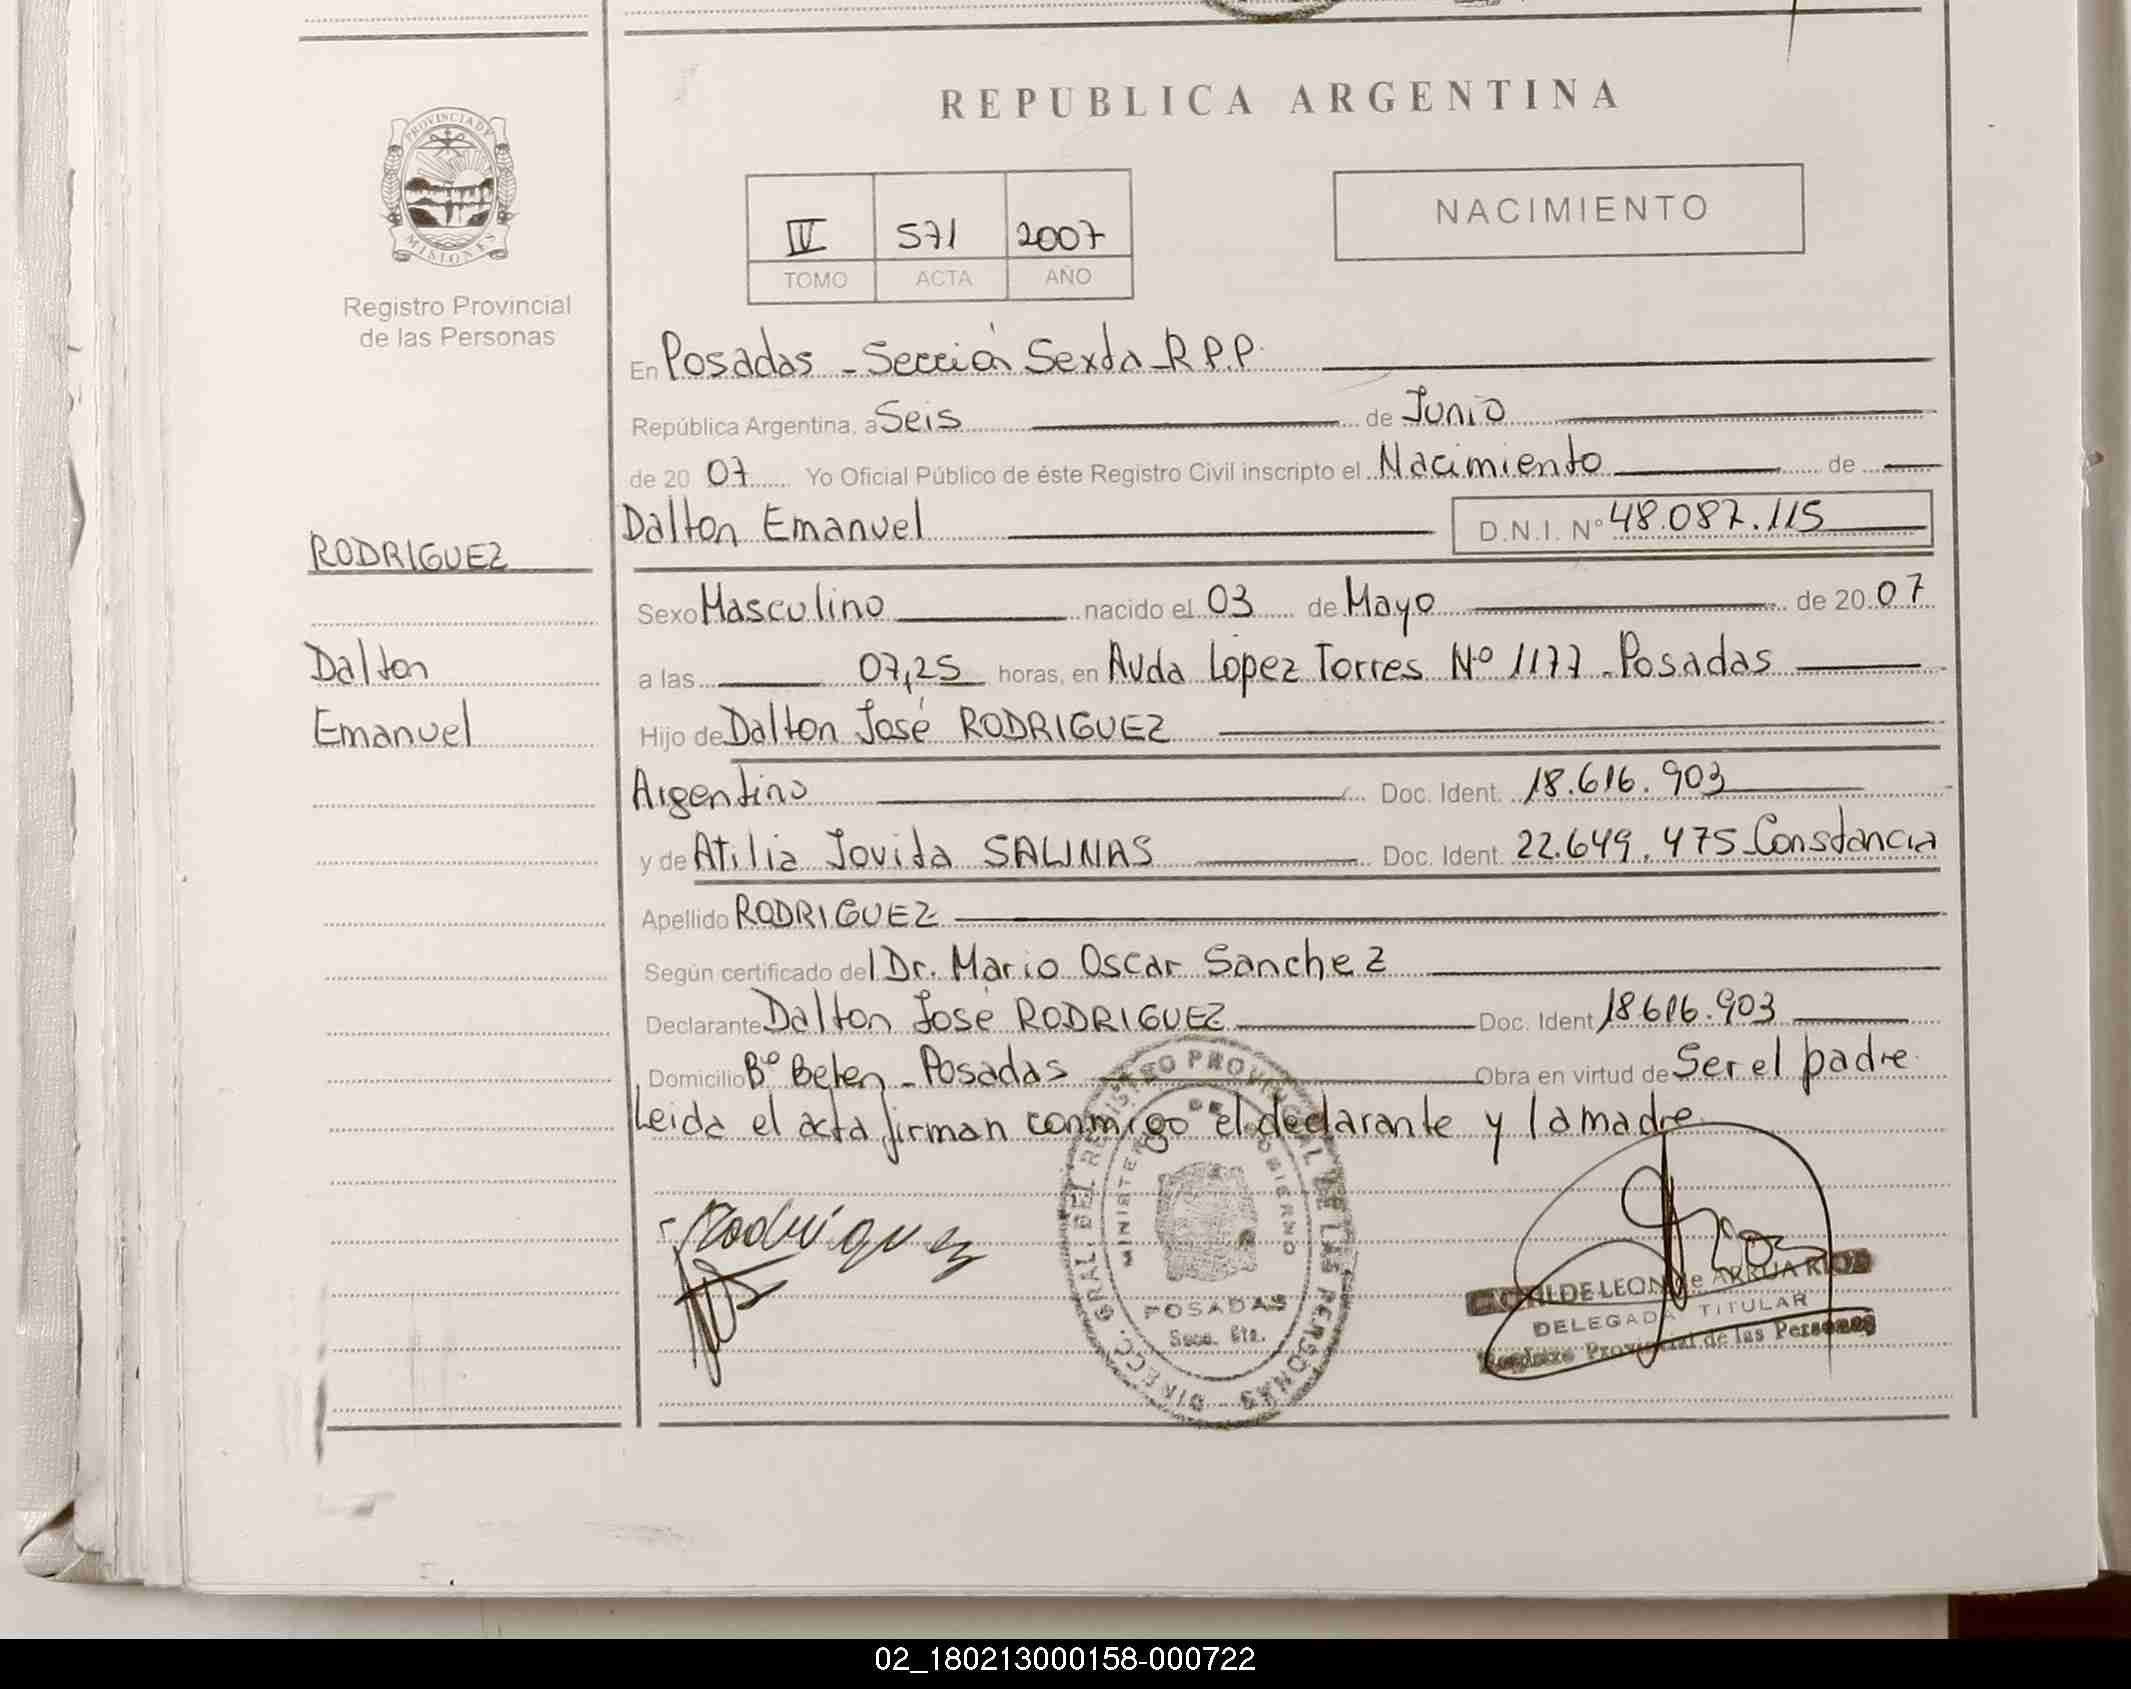 REPUBLICA ARGENTINA
PROVINCIA DE
MISIONES
Registro Provincial
de las Personas
IV 571 2007
TOMO ACTA AÑO
NACIMIENTO
En Posadas - Sección Sexta - R.P.P.
República Argentina, a Seis de Junio
de 20 07 Yo Oficial Público de éste Registro Civil inscripto el Nacimiento de
Dalton Emanuel D.N.I. Nº 48.087.115
RODRIGUEZ
Dalton
Emanuel
Sexo Masculino nacido el 03 de Mayo de 20 07
a las 07,25 horas, en Avda Lopez Torres Nº 1177 - Posadas
Hijo de Dalton José RODRIGUEZ
Argentino Doc. Ident. 18.616.903
y de Atilia Jovita SALINAS Doc. Ident. 22.649.475 Constancia
Apellido RODRIGUEZ
Según certificado del Dr. Mario Oscar Sanchez
Declarante Dalton José RODRIGUEZ Doc. Ident 18.616.903
Domicilio Bº Belen - Posadas Obra en virtud de Ser el padre.
Leida el acta firman conmigo el declarante y la madre
Rodriguez
DIRECC. GRAL. DEL REGISTRO PROVINCIAL DE LAS PERSONAS
MINISTERIO DE GOBIERNO
POSADAS
Secc. 6ta.
DE LEON de ARRUA RIOS
DELEGADA TITULAR
Registro Provincial de las Personas
02_180213000158-000722